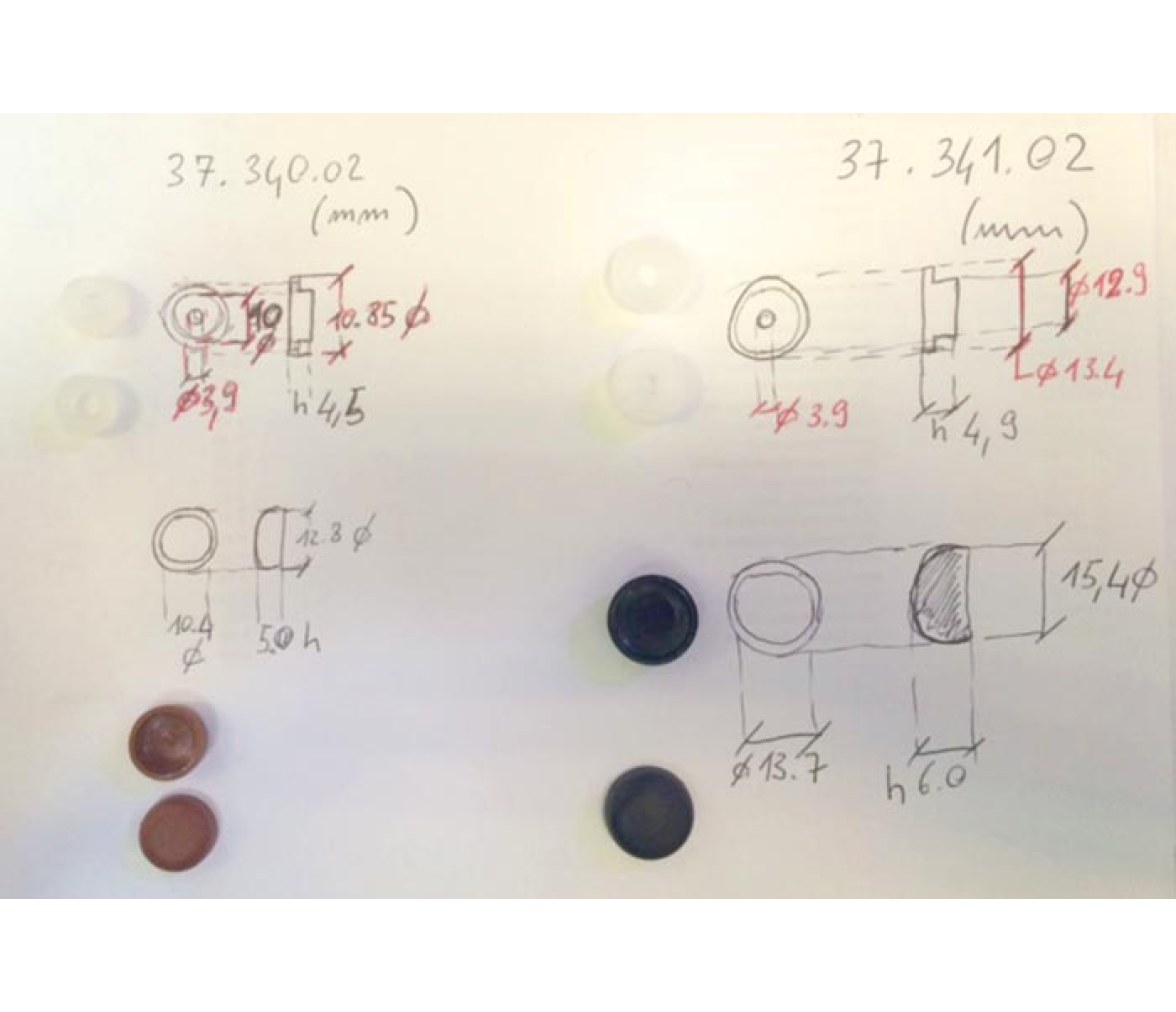 37.340.02
(mm)
10
ø
10.85 ø
ø3,9
h 4,5
12.8 ø
10.4
ø
5.0 h
37.341.02
(mm)
ø12.9
ø13.4
ø3.9
h 4,9
15,4ø
ø13.7
h 6.0